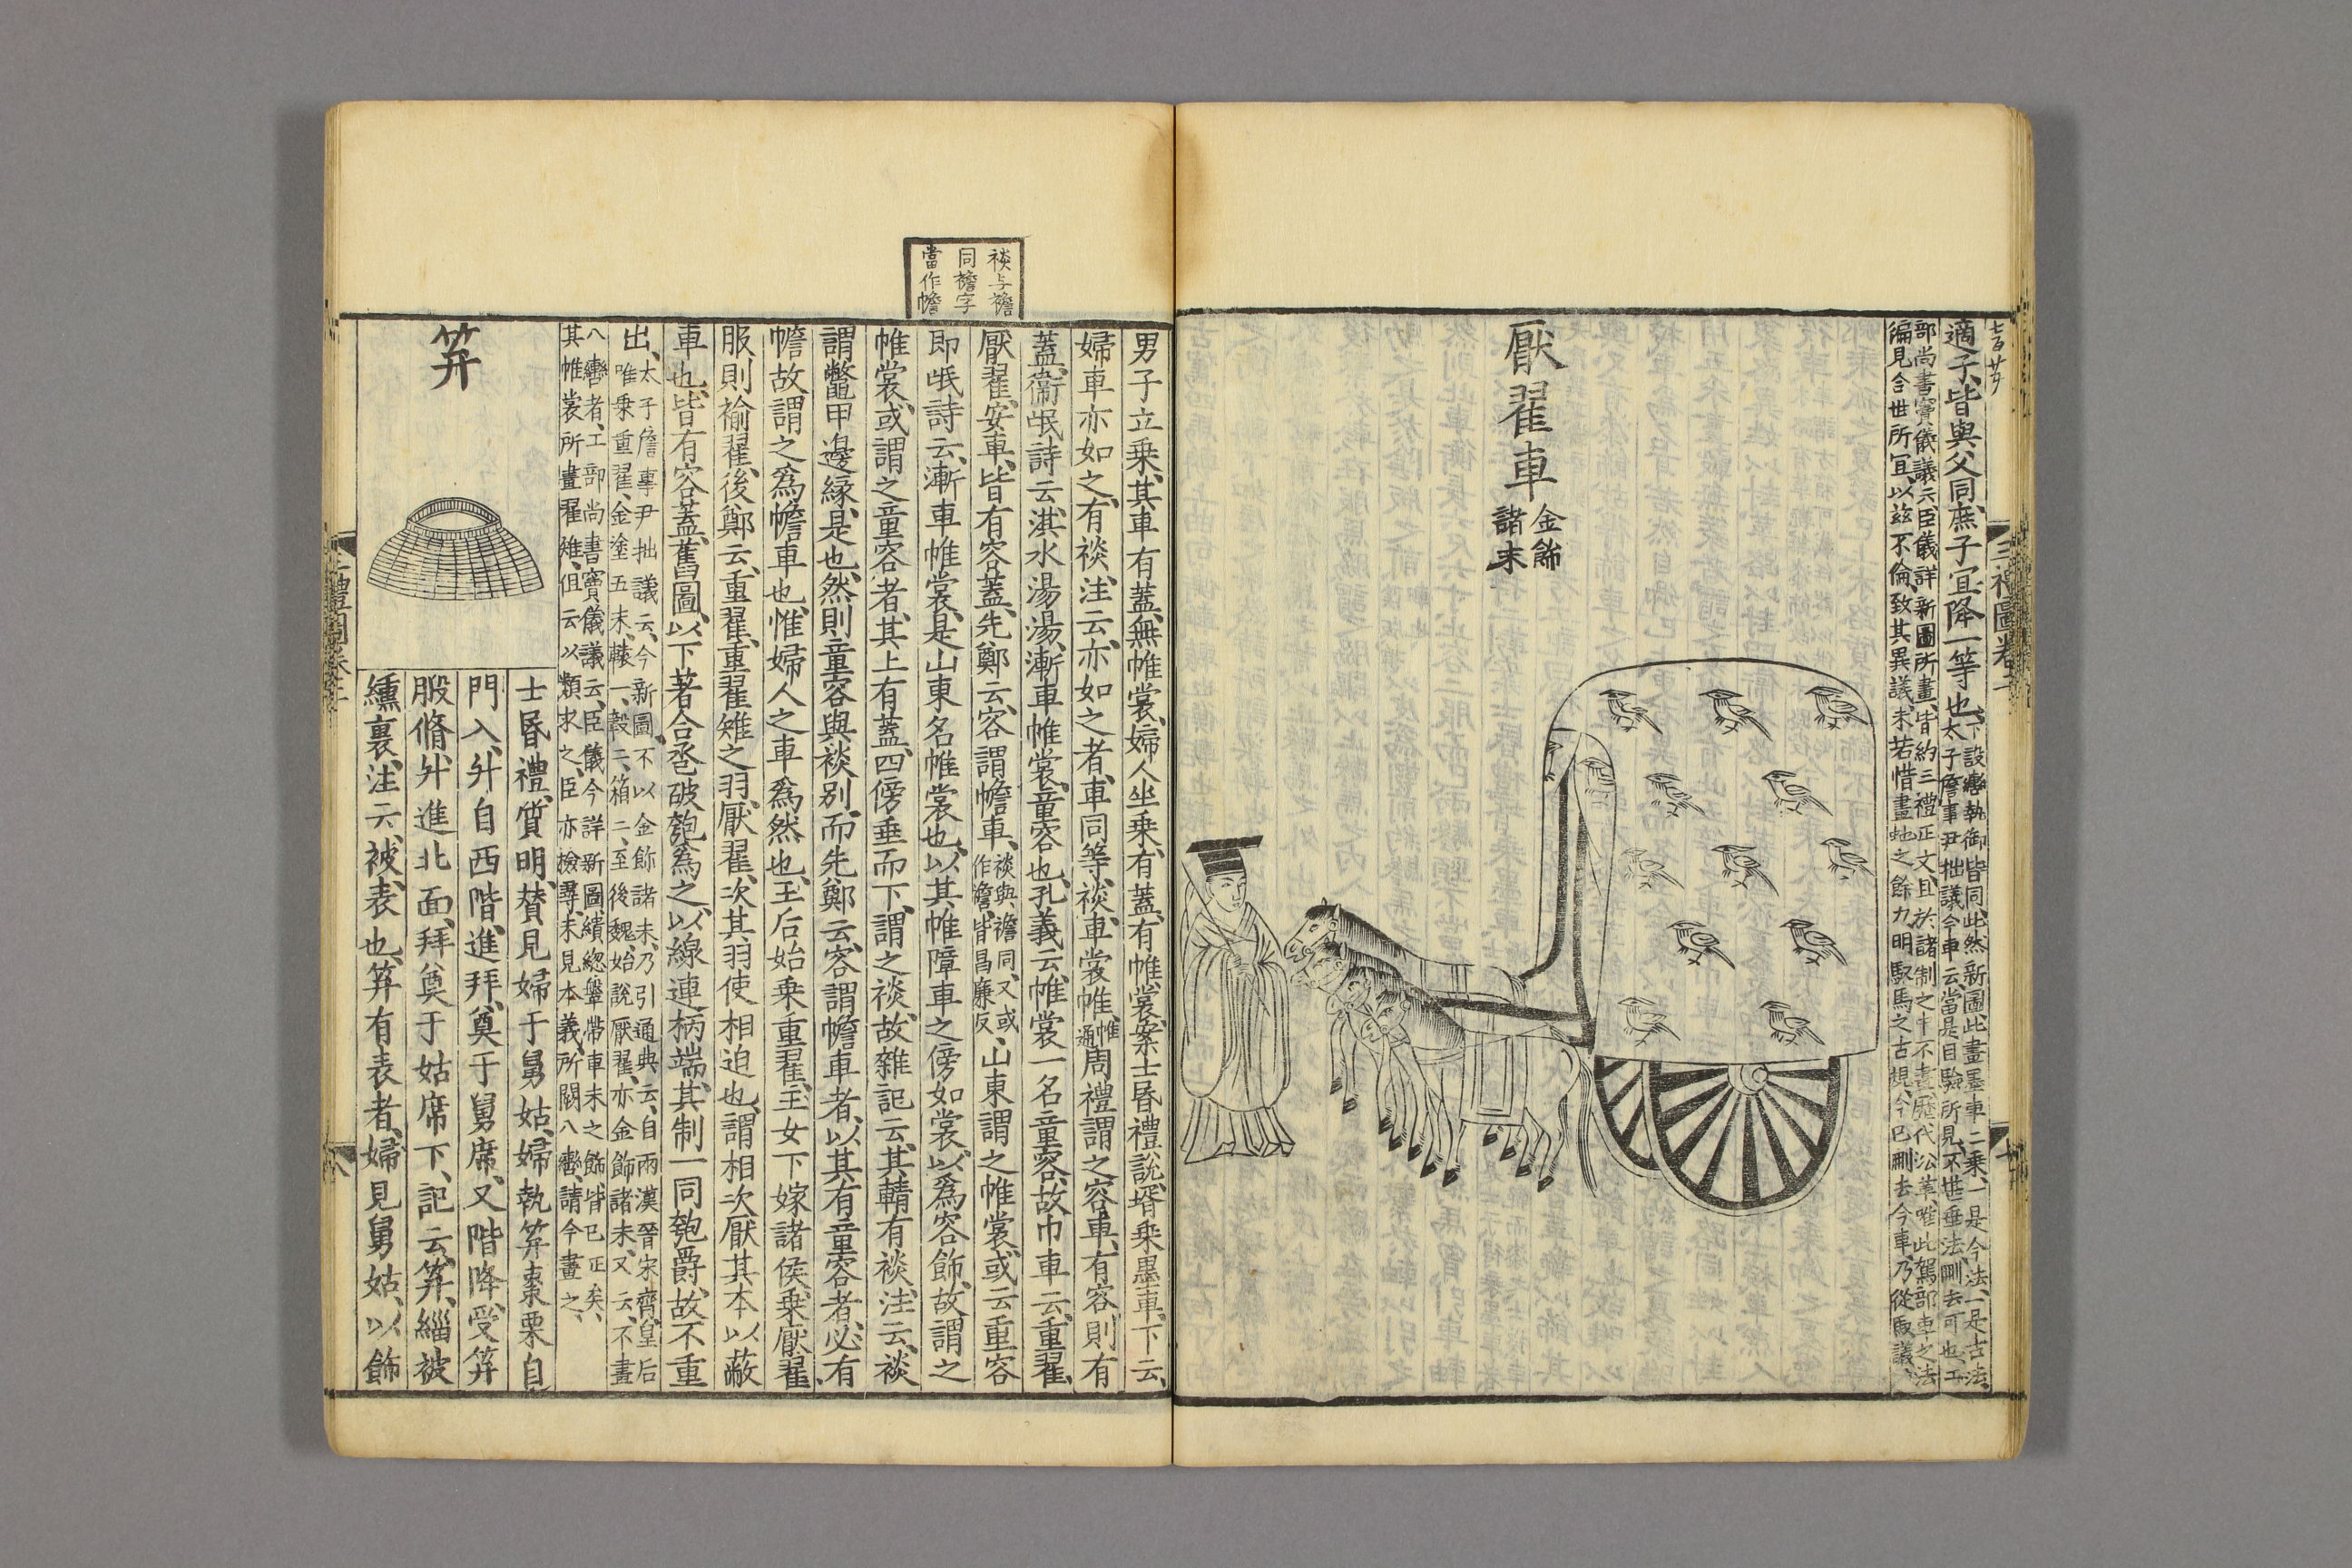 適子、皆與父同、庶子宜降一等也、
下設轡執御皆同、此然新圖此畫墨車二乗、一是今法、一是古法、
太子詹事尹拙議今車云、當是目驗所見、不堪垂法、刪去可也、工
部尚書竇儀議云、臣儀詳新圖所畫、皆約三禮正文、且於諸制之中不畫歷代沿革、唯此駕部車之法
偏見合世所宜、以茲不倫、致其異議、未若惜畫虵之餘力、明駁馬之古規、今已刪去今車、乃從取議、
三禮圖卷二
十
厭翟車
金飾
諸末
男子立乗、其車有蓋、無帷裳、婦人坐乗、有蓋、有帷裳、案士昏禮說、壻乗墨車、下云、
婦車亦如之、有裧、注云、亦如之者、車同等、裧、車裳帷、周禮謂之容車、有容則有
蓋、衞氓詩云、淇水湯湯、漸車帷裳、童容也、孔義云、帷裳一名童容、故巾車云、重翟、
厭翟、安車、皆有容蓋、先鄭云、容謂幨車、
裧與襜同、又或
作襜、皆昌廉反
山東謂之帷裳、或云重容
即氓詩云、漸車帷裳、是山東名帷裳也、以其帷障車之傍如裳、以爲容飾、故謂之
帷裳、或謂之童容者、其上有蓋、四傍垂而下、謂之裧、故雜記云、其輤有裧、注云、裧
謂鼈甲邊緣、是也、然則童容與裧别、而先鄭云、容謂幨車者、以其有童容者、必有
幨、故謂之爲幨車也、惟婦人之車爲然也、王后始乗重翟、王女下嫁諸侯、乗厭翟、
服則褕翟、後鄭云、重翟、重翟雉之羽、厭翟、次其羽使相迫也、謂相次厭其本以蔽
車也、皆有容蓋、舊圖、以下著合巹破匏爲之、以線連柄端、其制一同匏爵、故不重
出、
太子詹事尹拙議云、今新圖、不以金飾諸末、乃引通典云、自兩漢晉宋齊、皇后
唯乗重翟、金塗五末、轅一、轂二、箱二、至後魏、始說厭翟、亦金飾諸末、又云、不畫
八轡者、工部尚書竇儀議云、臣儀今詳新圖繢緫鞶帶車末之飾、皆已正矣、
其帷裳所畫翟雉、但云以類求之、臣亦檢尋、未見本義、所闕八轡、請今畫之、
笲
士昏禮、質明、賛見婦于舅姑、婦執笲棗栗自
門入、升自西階、進拜、奠于舅席、又階降、受笲
腶脩、升進北面、拜奠于姑席下、記云、笲、緇被
纁裏、注云、被、表也、笲有表者、婦見舅姑、以飾
裧与襜
同襜字
當作幨